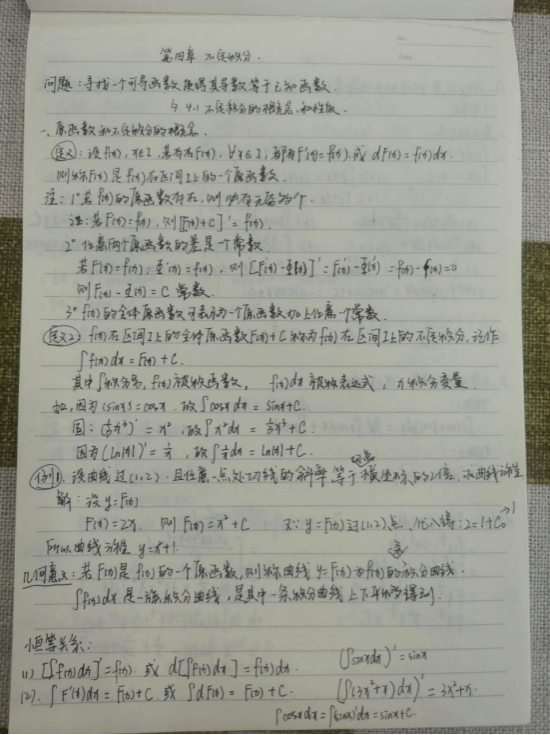 第四章 不定积分.
问题：寻找一个可导函数使得其导数等于已知函数.
§4.1 不定积分的概念和性质.
一、原函数和不定积分的概念.
定义1：设f(x), x∈I, 若存在F(x), ∀x∈I, 都有F'(x)=f(x) 或 dF(x)=f(x)dx.
则称F(x)是f(x)在区间I上的一个原函数.
注：1° 若f(x)的原函数存在, 则必有无穷多个.
证：若F'(x)=f(x), 则[F(x)+C]'=f(x).
2° 任意两个原函数的差是一个常数.
若F'(x)=f(x), Φ'(x)=f(x), 则[F(x)-Φ(x)]'=F'(x)-Φ'(x)=f(x)-f(x)=0
则F(x)-Φ(x)=C 常数.
3° f(x)的全体原函数可表示为一个原函数加上任意一个常数.
定义2：f(x)在区间I上的全体原函数F(x)+C称为f(x)在区间I上的不定积分, 记作
∫f(x)dx=F(x)+C.
其中∫积分号, f(x)被积函数, f(x)dx被积表达式, x积分变量
如, 因为(sinx)'=cosx, 故∫cosxdx=sinx+C.
因：(⅓x³)'=x², 故∫x²dx=⅓x³+C.
因为(ln|x|)'=1/x, 故∫1/x dx=ln|x|+C.
例1. 设曲线过(1,2), 且任意一点处切线的斜率等于切点横坐标的2倍, 求曲线方程
解：设y=F(x)
F'(x)=2x. 则F(x)=x²+C 又∵y=F(x)过(1,2)点, 代入得：2=1+C→1
所以曲线方程 y=x²+1.
几何意义：若F(x)是f(x)的一个原函数, 则称曲线y=F(x)为f(x)的积分曲线.
∫f(x)dx是一族积分曲线, 是其中一条积分曲线上下平移得到.
恒等关系：
(1) [∫f(x)dx]'=f(x). 或 d[∫f(x)dx]=f(x)dx. (∫sinxdx)'=sinx
(2). ∫F'(x)dx=F(x)+C. 或 ∫dF(x)=F(x)+C. [∫(3x²+x)dx]'=3x²+x.
∫cosxdx=∫(sinx)'dx=sinx+C.